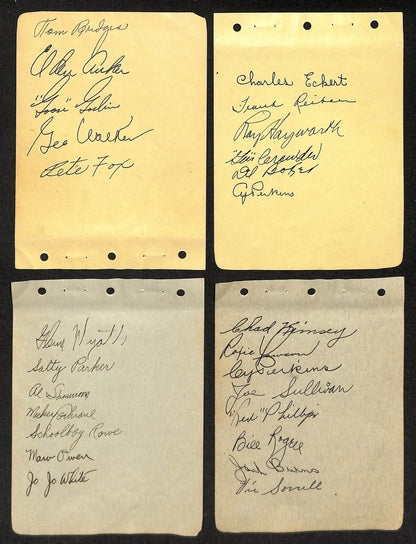 Tom Bridges
Elden Auker
"Goose" Goslin
Gee Walker
Pete Fox
Charles Eckert
Frank Reiber
Ray Hayworth
"Gen" Crowder
Cy Perkins
Glenn Myatt
Salty Parker
Al Simmons
Mickey Cochrane
Schoolboy Rowe
Marv Owen
Jo Jo White
Chad Kimsey
Roxie Lawson
Cy Perkins
Joe Sullivan
"Red" Phillips
Bill Rogell
Jack Burns
Vic Sorrell